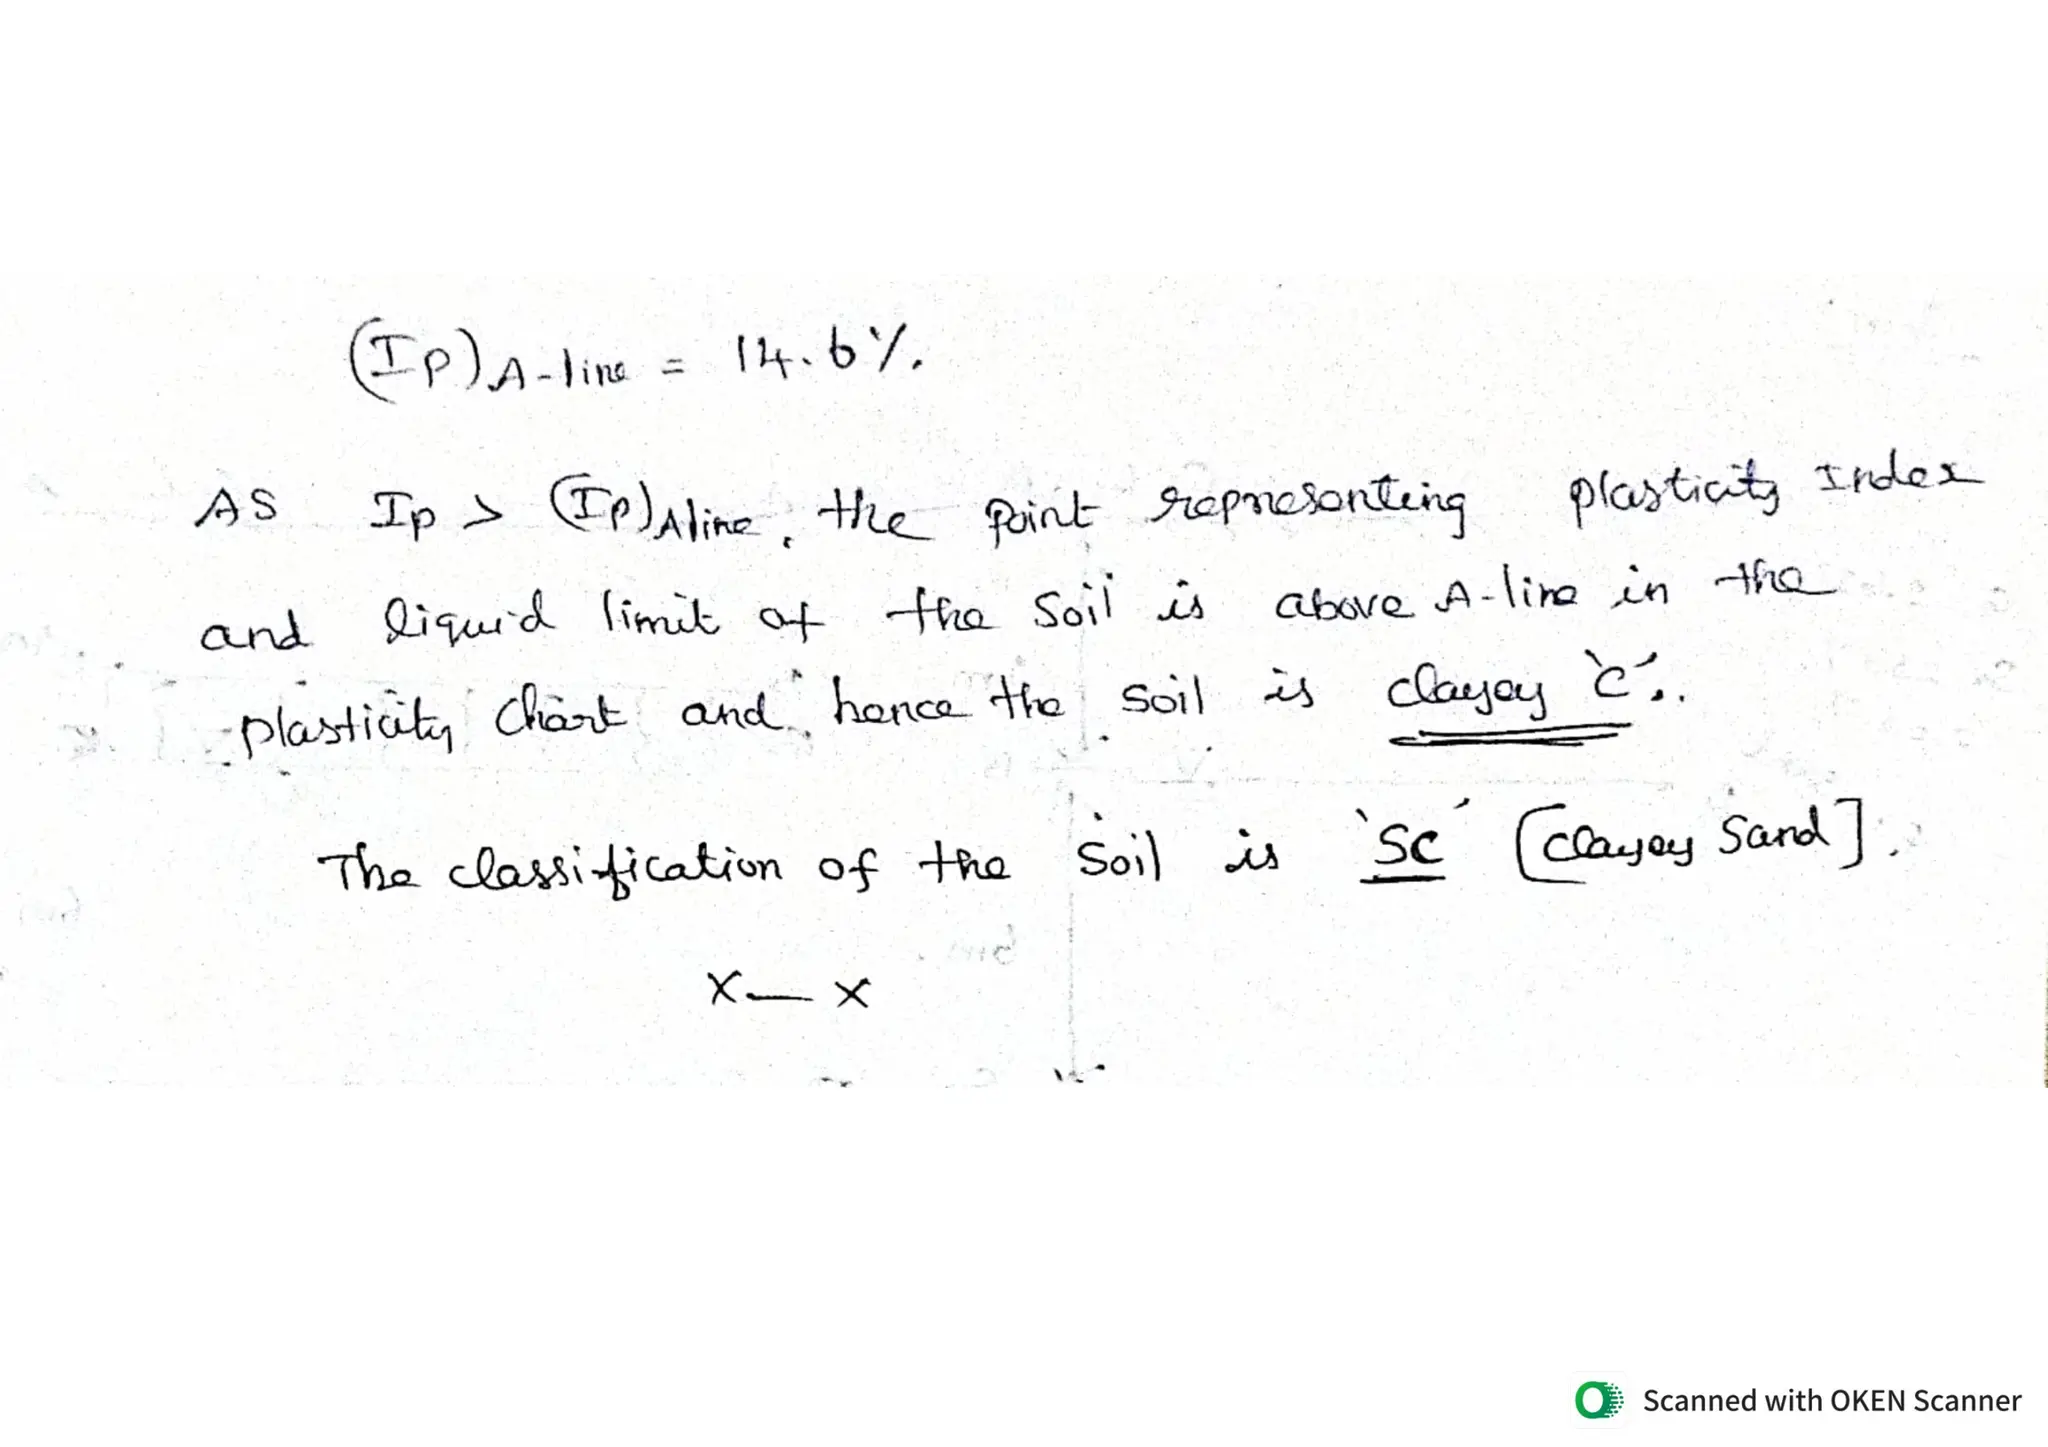 (Ip)A-line = 14.6%.
AS Ip > (Ip)Aline, the point representing plasticity Index
and liquid limit of the Soil is above A-line in the
plasticity Chart and hence the soil is clayey 'C'.
The classification of the Soil is 'SC' [clayey Sand].
x — x
Scanned with OKEN Scanner